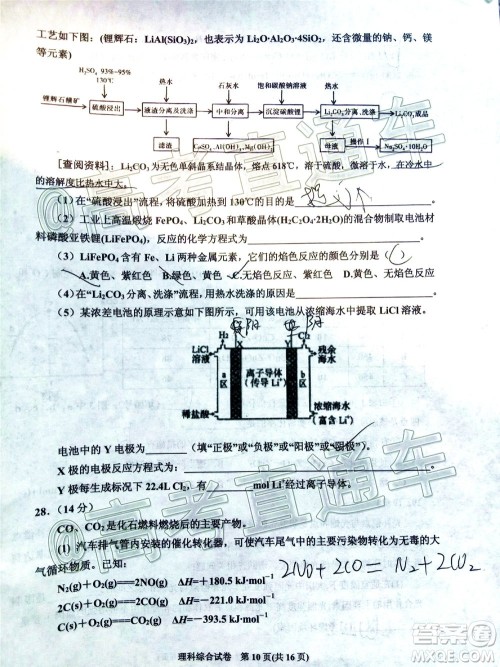 工艺如下图：(锂辉石：LiAl(SiO₃)₂，也表示为 Li₂O·Al₂O₃·4SiO₂，还含微量的钠、钙、镁
等元素)
H₂SO₄ 93%~95%
130℃
热水
石灰水
饱和碳酸钠溶液
热水
锂辉石精矿
硫酸浸出
液渣分离及洗涤
中和分离
沉淀碳酸锂
Li₂CO₃分离、洗涤
Li₂CO₃成品
滤渣
CaSO₄,Al(OH)₃,Mg(OH)₂
母液
操作1
Na₂SO₄·10H₂O
[查阅资料]：Li₂CO₃ 为无色单斜晶系结晶体，熔点 618℃，溶于硫酸，微溶于水，在冷水中
的溶解度比热水中大。
（1）在“硫酸浸出”流程，将硫酸加热到 130℃的目的是
（2）工业上高温煅烧 FePO₄、Li₂CO₃ 和草酸晶体(H₂C₂O₄·2H₂O)的混合物制取电池材
料磷酸亚铁锂(LiFePO₄)，反应的化学方程式为
（3）LiFePO₄ 含有 Fe、Li 两种金属元素，它们的焰色反应的颜色分别是（ ）
A.黄色、紫红色 B.绿色、黄色 C.无焰色反应、紫红色 D.无焰色反应、黄色
（4）在“Li₂CO₃ 分离、洗涤”流程，用热水洗涤的原因是
（5）某浓差电池的原理示意如下图所示，可用该电池从浓缩海水中提取 LiCl 溶液。
H₂
Cl₂
X
Y
LiCl
溶液
残余
海水
a
区
离子导体
（传导 Li⁺）
b
区
稀盐酸
浓缩海水
（高含 Li⁺）
电池中的 Y 电极为（填“正极”或“负极”或“阳极”或“阴极”）
X 极的电极反应方程式为：
Y 极每生成标况下 22.4L Cl₂，有 mol Li⁺经过离子导体。
28.（14 分）
CO、CO₂ 是化石燃料燃烧后的主要产物。
(1) 汽车排气管内安装的催化转化器，可使汽车尾气中的主要污染物转化为无毒的大
气循环物质。已知：
2NO+2CO=N₂+2CO₂
N₂(g)+O₂(g)=2NO(g) ΔH=+180.5 kJ·mol⁻¹
2C(s)+O₂(g)=2CO(g) ΔH=-221.0 kJ·mol⁻¹
C(s)+O₂(g)=CO₂(g) ΔH=-393.5 kJ·mol⁻¹
理科综合试卷 第 10 页(共 16 页)
高考直通车
高考直通车
作业帮